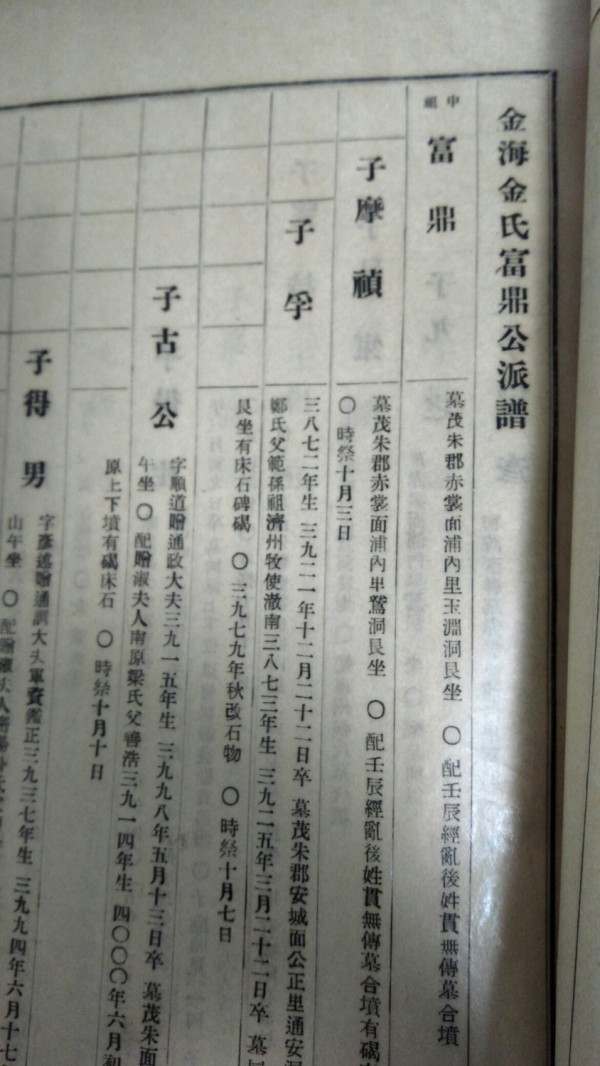 金海金氏富鼎公派譜
中祖
富鼎
墓茂朱郡赤裳面浦內里玉淵洞艮坐 〇 配壬辰經亂後姓貫無傳墓合墳
子摩禎
墓茂朱郡赤裳面浦內里鷲洞艮坐 〇 配壬辰經亂後姓貫無傳墓合墳有碣
〇 時祭十月三日
子孚
三八七二年生 三九二一年十二月二十二日卒 墓茂朱郡安城面公正里通安
鄭氏父範孫祖濟州牧使澈南三八七三年生 三九二五年三月二十二日卒 墓
艮坐有床石碑碣 〇 三九七九年秋改石物 〇 時祭十月七日
子古公
字順道贈通政大夫三九一五年生 三九九八年五月十三日卒 墓茂朱面
午坐 〇 配贈淑夫人南原梁氏父善浩三九一四年生 四〇〇〇年六月
原上下墳有碣床石 〇 時祭十月十日
子得男
字彥述贈通訓大夫軍資鑑正三九三七年生 三九九四年六月十七
山午坐 〇 配贈淑人